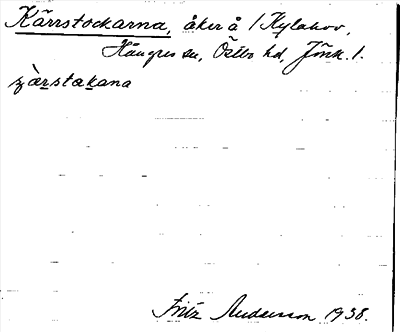 Kärrstockarna, åker å 1 Kylahov,
Hånger sn, Östbo hd, Jönk. l.
çæ̀rstakana
Fritz Anderson 1938.